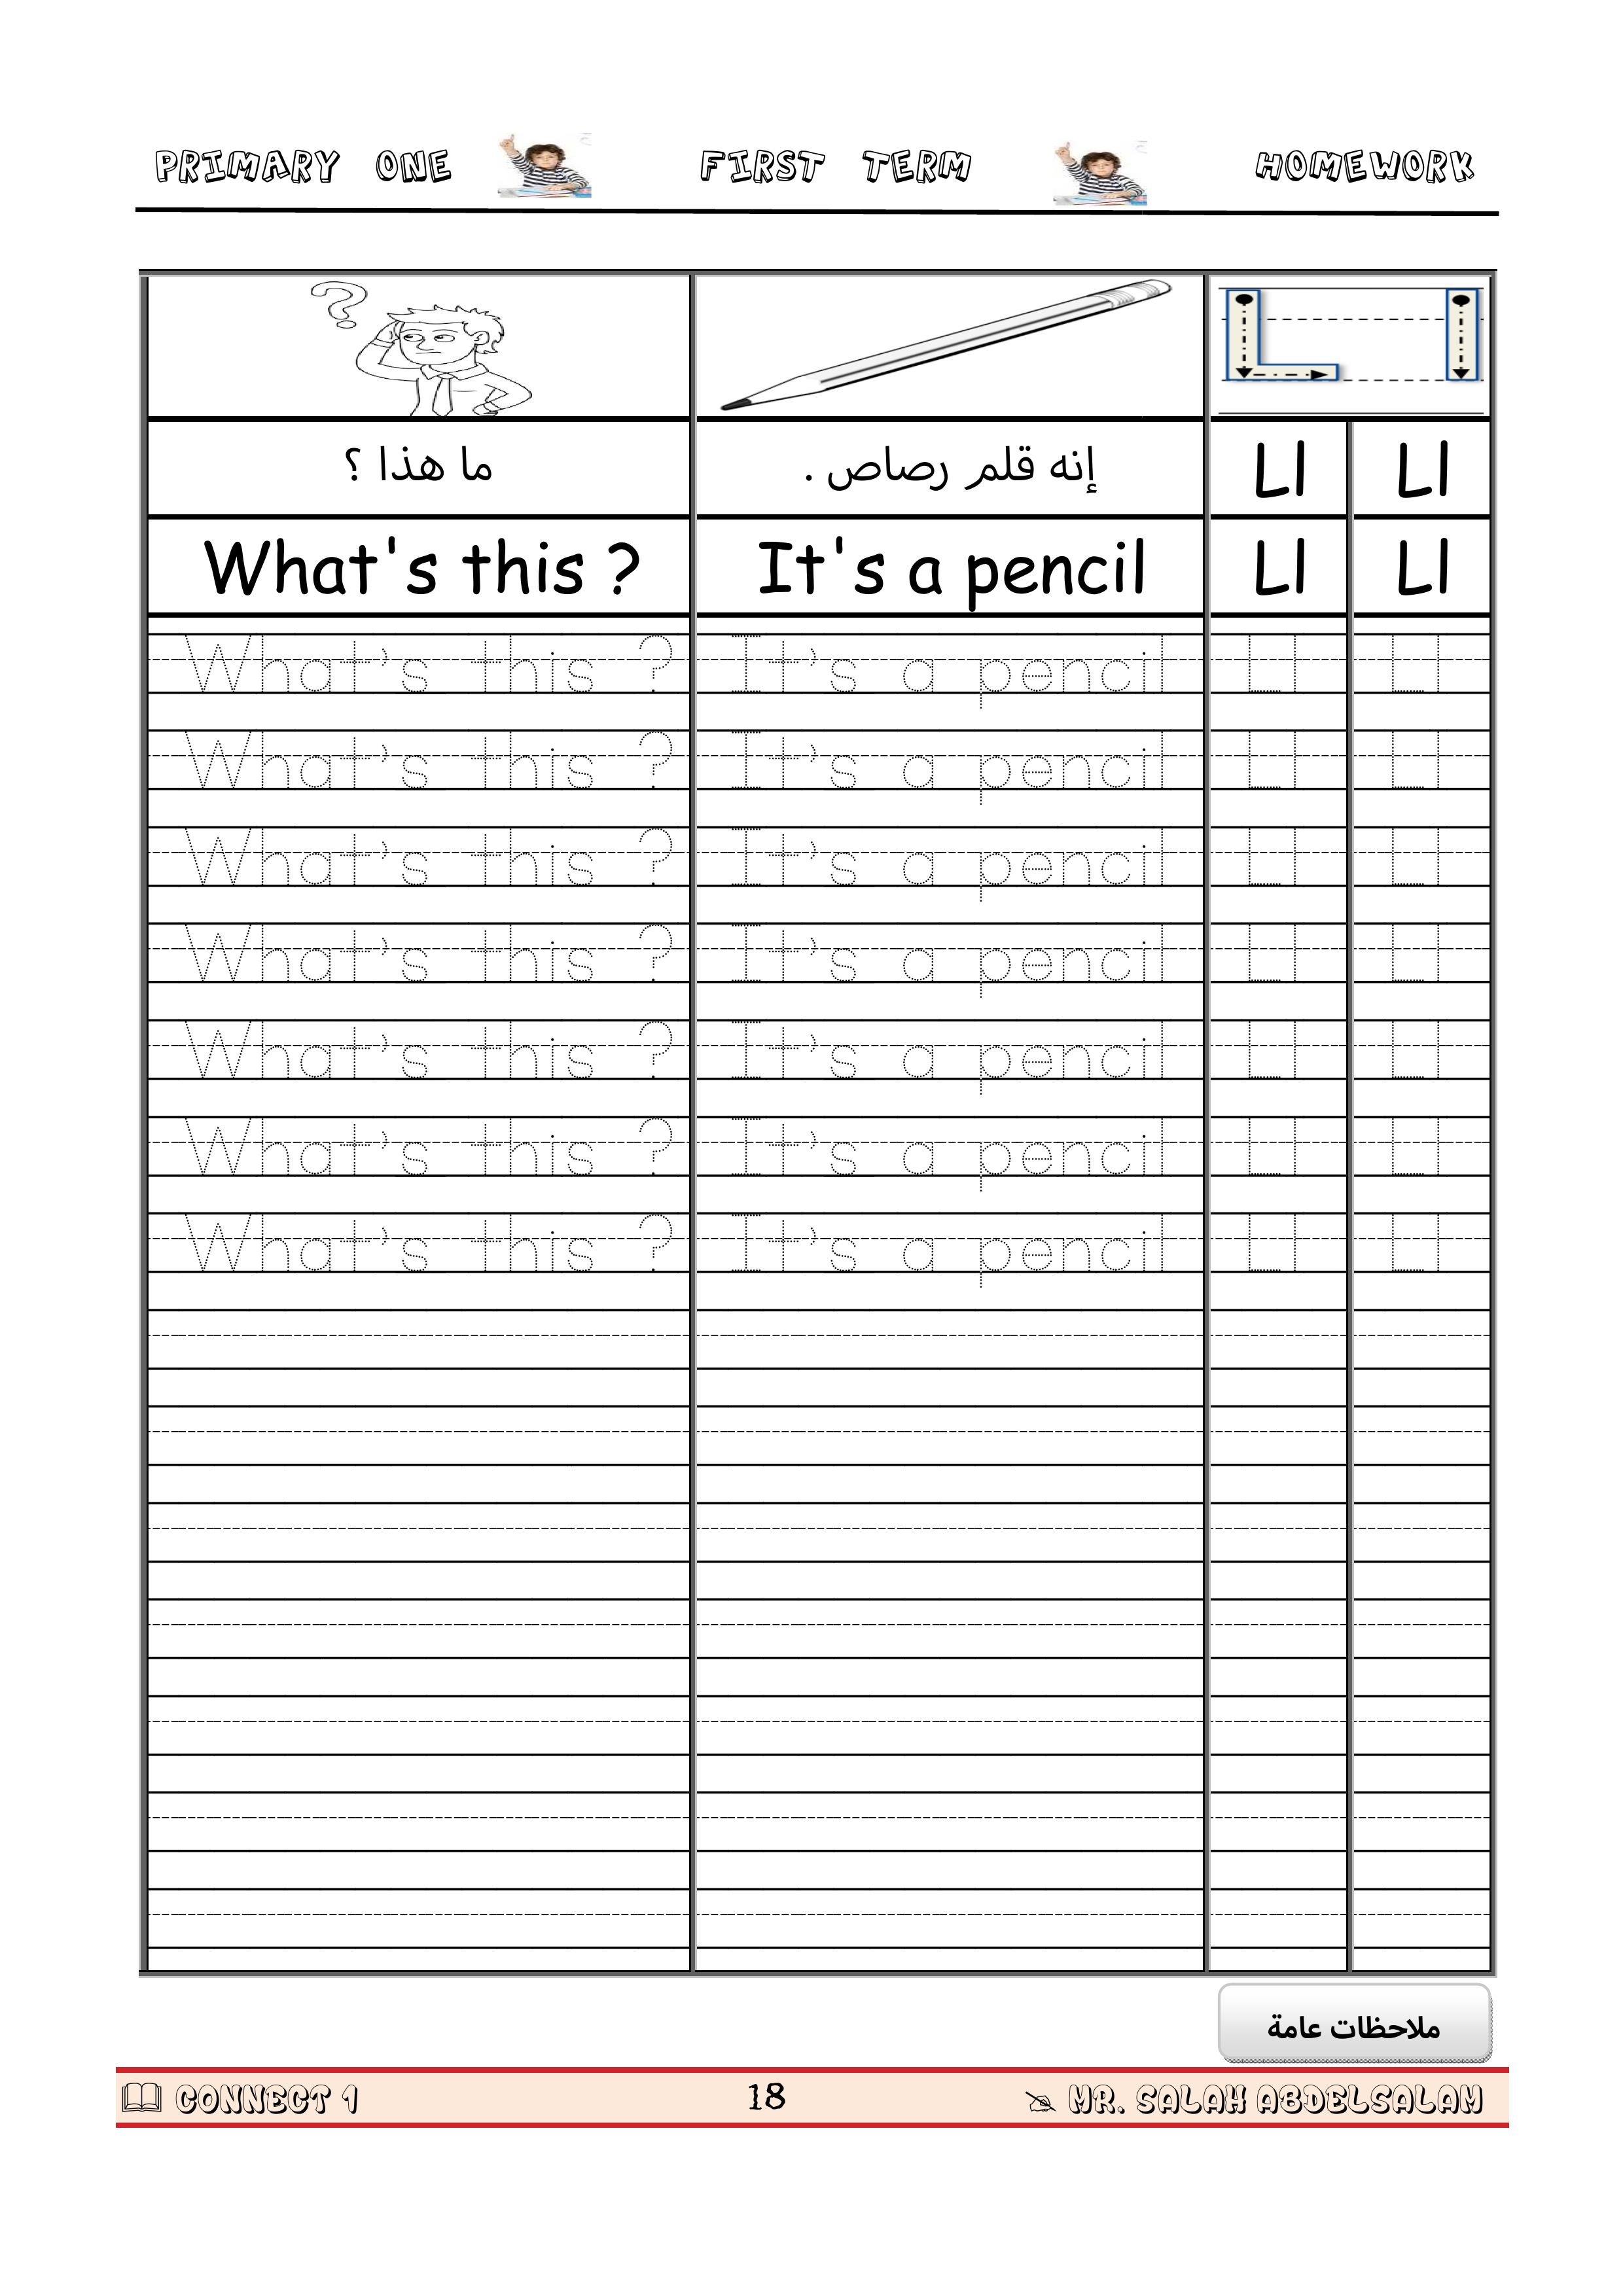 PRIMARY ONE FIRST TERM HOMEWORK
ما هذا ؟ إنه قلم رصاص . Ll Ll
What's this ? It's a pencil Ll Ll
What's this ? It's a pencil Ll Ll
What's this ? It's a pencil Ll Ll
What's this ? It's a pencil Ll Ll
What's this ? It's a pencil Ll Ll
What's this ? It's a pencil Ll Ll
What's this ? It's a pencil Ll Ll
What's this ? It's a pencil Ll Ll
ملاحظات عامة
CONNECT 1 18 MR. SALAH ABDELSALAM